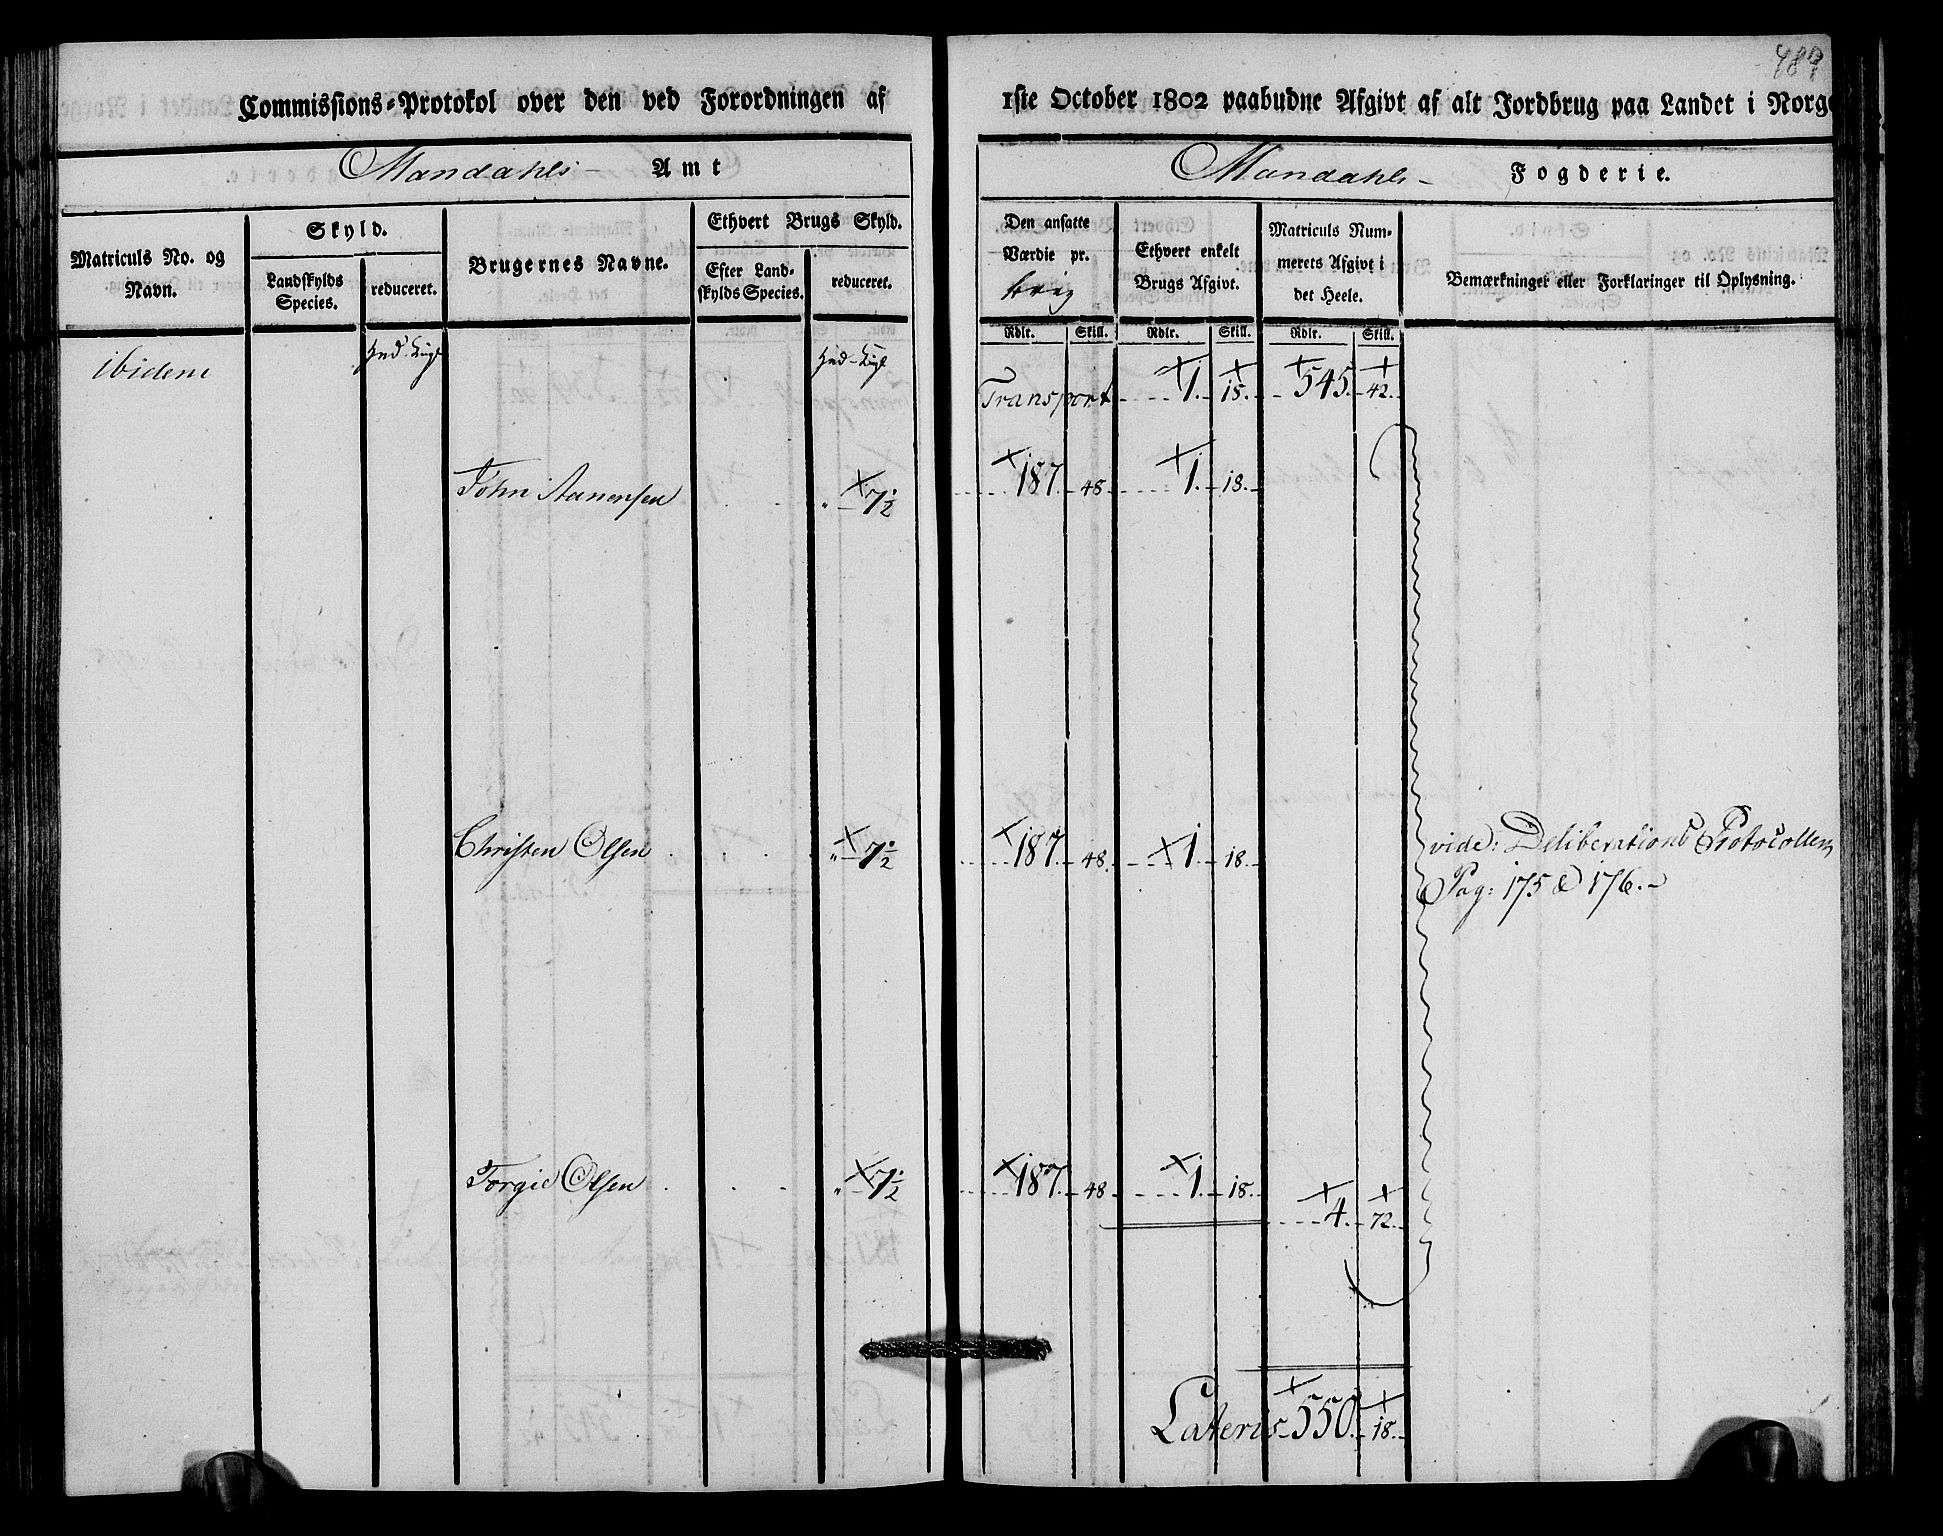 Commissions-Protokol over den ved Forordningen af 1ste October 1802 paabudne Afgivt af alt Jordbrug paa Landet i Norge
Mandahls - Amt
Mandahls - Fogderie.
Matriculs No. og Navn.
Skyld.
Landskylds Species.
reduceret.
Brugernes Navne.
Ethvert Brugs Skyld.
Efter Landskylds Species.
reduceret.
Den ansatte Værdie pr.
Ethvert enkelt Brugs Afgivt.
Matriculs Nummerets Afgivt i det Heele.
Bemærkninger eller Forklaringer til Oplysning.
Rdlr. Skill. Rdlr. Skill. Rdlr. Skill.
ibidem
Transport 1. 18. 545. 42.
John Aanensen " 7 1/2 187. 48 1. 18.
Christen Olsen " 7 1/2 187. 48. 1. 18.
vide: Deliberations Protocollen
Pag: 175 & 176.
Torgie Olsen " 7 1/2 187. 48 1. 18.
4. 72.
Lateris 550. 18.